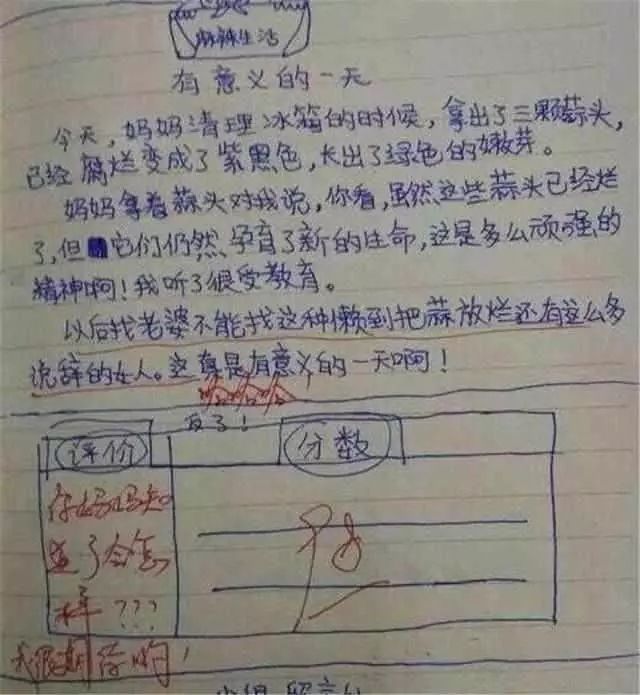 麻辣生活
有意义的一天
今天,妈妈清理冰箱的时候,拿出了三颗蒜头,
已经腐烂变成了紫黑色,长出了绿色的嫩芽。
妈妈拿着蒜头对我说,你看,虽然这些蒜头已经烂
了,但它们仍然孕育了新的生命,这是多么顽强的
精神啊!我听了很受教育。
以后找老婆不能找这种懒到把蒜放烂还有这么多
说辞的女人。这真是有意义的一天啊!
哈哈哈
反了!
评价
分数
你妈妈知
道了会怎
样???
我很期待哟!
小组留言